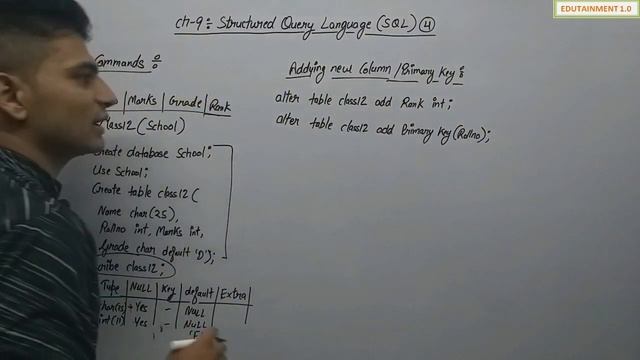 EDUTAINMENT 1.0
ch-9: Structured Query Language (SQL) 4
Commands :
Marks | Grade | Rank
Class12 (School)
Create database School;
Use School;
Create table class12 (
Name char(25),
Rollno int, Marks int,
Grade char default 'D');
cribe class12;
Type | NULL | Key | default | Extra
char(25) Yes - NULL
int(11) Yes - NULL
Addying new Column/Primary Key :
alter table class12 add Rank int;
alter table class12 add Primary Key (Rollno);